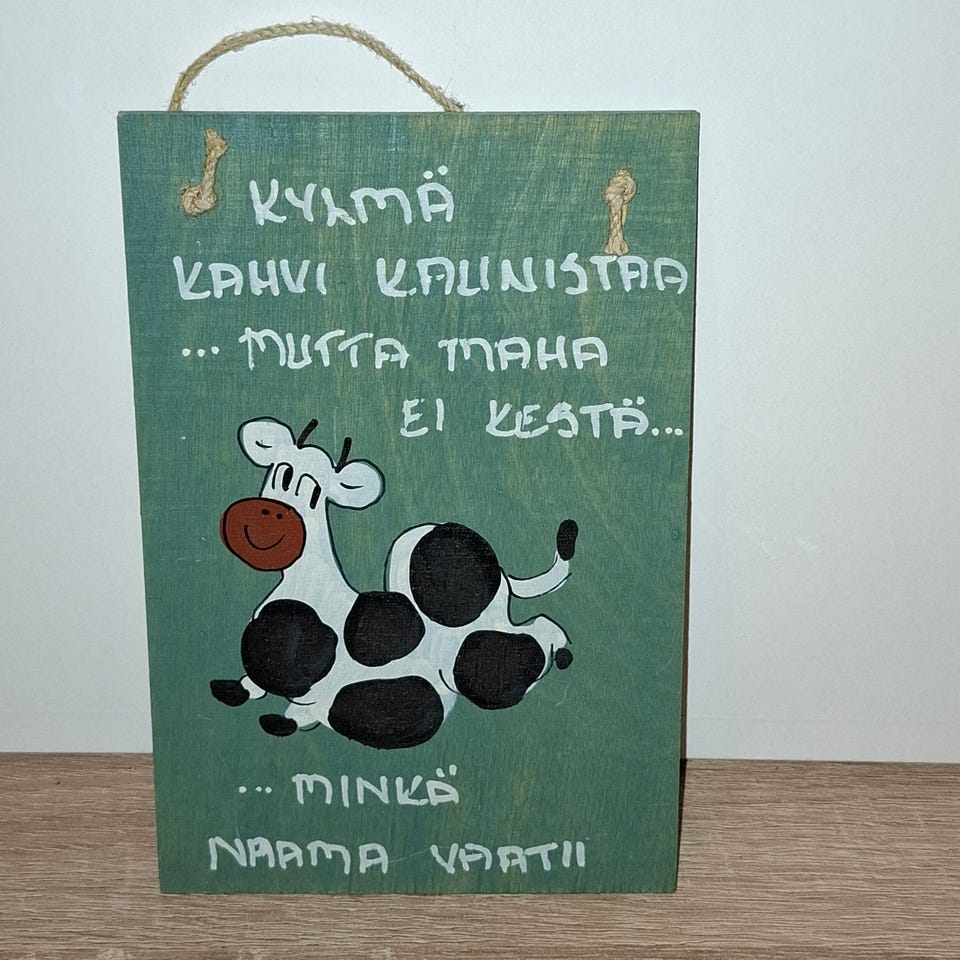 KYLMÄ
KAHVI KAUNISTAA
... MUTTA MAHA
EI KESTÄ...
... MINKÄ
NAAMA VAATII